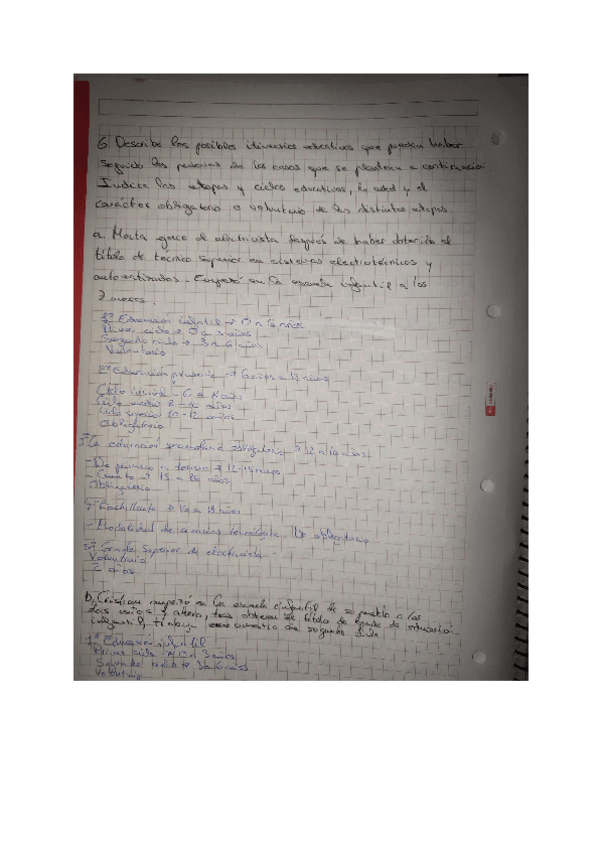 6 Describe los posibles itinerarios educativos que puedan haber
seguido las personas de los casos que se plantean a continuación.
Indica las etapas y ciclos educativos, la edad y el
carácter obligatorio o voluntario de las distintas etapas.
a. Marta ejerce de electricista después de haber obtenido el
título de técnico superior en sistemas electrotécnicos y
automatizados. Empezó en la escuela infantil a los
7 meses.
1º Educación infantil → 0 a 6 años
Primer ciclo → 0 a 3 años
Segundo ciclo → 3 a 6 años
Voluntario
2º Educación primaria → 6 años a 12 años
Ciclo inicial - 6 a 8 años
Ciclo medio 8 - 10 años
Ciclo superior 10 - 12 años
Obligatorio
3º La educación secundaria obligatoria (12 a 16 años)
- De primero a tercero 12-15 años
- Cuarto → 15 a 16 años
Obligatorio
4º Bachillerato 16 a 18 años
- Modalidad de ciencias tecnológica. No obligatorio
5º Grado Superior de electricista -
Voluntario
2 años
b. Cristian empezó en la escuela infantil de su pueblo a los
dos años y ahora, tras obtener el título de grado de educación
infantil, trabaja como maestro de segundo ciclo
1º Educación infantil
Primer ciclo 0 a 3 años
Segundo ciclo 3 a 6 años
Voluntario